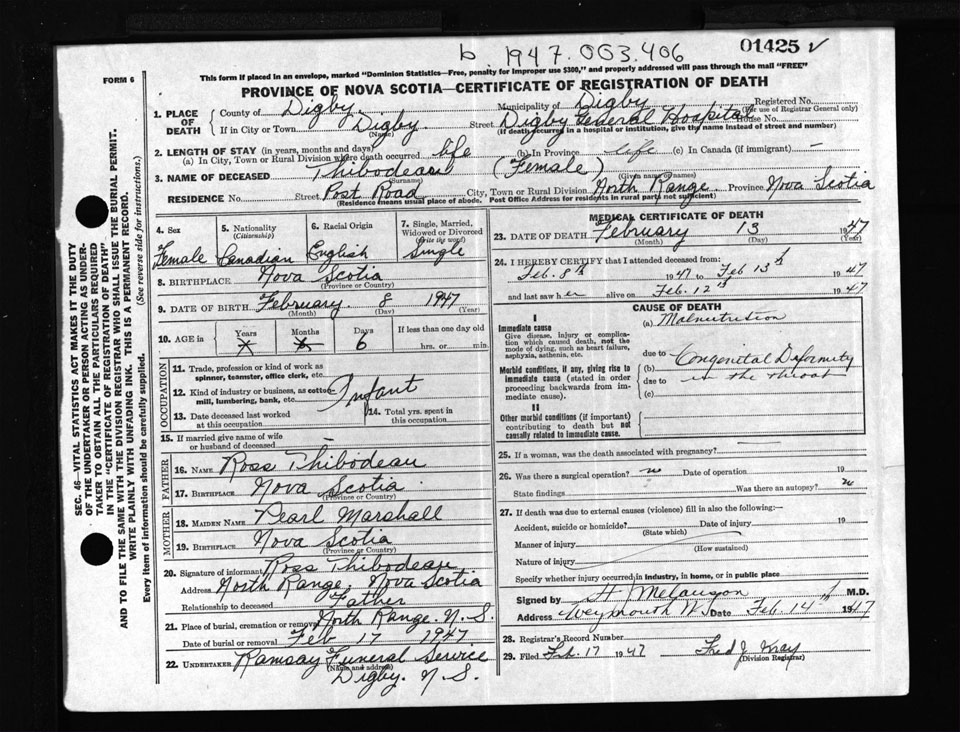 b. 1947.003.406
01425 ✓
This form if placed in an envelope, marked “Dominion Statistics—Free, penalty for improper use $300,” and properly addressed will pass through the mail “FREE”
FORM 6
PROVINCE OF NOVA SCOTIA—CERTIFICATE OF REGISTRATION OF DEATH
SEC. 46—VITAL STATISTICS ACT MAKES IT THE DUTY
OF THE UNDERTAKER OR PERSON ACTING AS UNDER-
TAKER TO OBTAIN ALL THE PARTICULARS REQUIRED
IN THE “CERTIFICATE OF REGISTRATION OF DEATH”
AND TO FILE THE SAME WITH THE DIVISION REGISTRAR WHO SHALL ISSUE THE BURIAL PERMIT.
WRITE PLAINLY WITH UNFADING INK. THIS IS A PERMANENT RECORD.
Every item of information should be carefully supplied. (See reverse side for instructions.)
1. PLACE OF DEATH County of Digby Municipality of Digby Registered No.
(For use of Registrar General only)
If in City or Town Digby. Street Digby General Hospital House No.
(Name) (If death occurred in a hospital or institution, give the name instead of street and number)
2. LENGTH OF STAY (in years, months and days)
(a) In City, Town or Rural Division where death occurred life (b) In Province life (c) In Canada (if immigrant) —
3. NAME OF DECEASED Thibodeau (Female)
(Surname) (Given name or names)
RESIDENCE No. Street Post Road City, Town or Rural Division North Range Province Nova Scotia
(Residence means usual place of abode. Post Office Address for residents in rural parts not sufficient)
4. Sex 5. Nationality (Citizenship) 6. Racial Origin 7. Single, Married, Widowed or Divorced (Write the word)
Female Canadian English Single
8. BIRTHPLACE Nova Scotia
(Province or Country)
9. DATE OF BIRTH February 8 1947
(Month) (Day) (Year)
10. AGE in Years Months Days If less than one day old
x x 6 hrs. or min.
OCCUPATION
11. Trade, profession or kind of work as
spinner, teamster, office clerk, etc.
12. Kind of industry or business, as cotton
mill, lumbering, bank, etc. Infant
13. Date deceased last worked
at this occupation
14. Total yrs. spent in
this occupation
15. If married give name of wife
or husband of deceased —
FATHER
16. NAME Ross Thibodeau
17. BIRTHPLACE Nova Scotia
(Province or Country)
MOTHER
18. MAIDEN NAME Pearl Marshall
19. BIRTHPLACE Nova Scotia
(Province or Country)
20. Signature of informant Ross Thibodeau
Address North Range, Nova Scotia
Relationship to deceased Father
21. Place of burial, cremation or removal North Range. N. S.
Date of burial or removal Feb 17 1947
22. UNDERTAKER Ramsay Funeral Service
(Name and address)
Digby. N. S.
MEDICAL CERTIFICATE OF DEATH
23. DATE OF DEATH February 13 1947
(Month) (Day) (Year)
24. I HEREBY CERTIFY that I attended deceased from:
Feb. 8th 1947 to Feb 13th 1947
and last saw her alive on Feb. 12th 1947
CAUSE OF DEATH
I
Immediate cause
Give disease, injury or complica-
tion which caused death, not the
mode of dying, such as heart failure,
asphyxia, asthenia, etc.
(a) Malnutrition
due to
Morbid conditions, if any, giving rise to
immediate cause (stated in order
proceeding backwards from im-
mediate cause).
(b) Congenital Deformity
due to in the throat
(c)
II
Other morbid conditions (if important)
contributing to death but not
causally related to immediate cause.
25. If a woman, was the death associated with pregnancy?
26. Was there a surgical operation? no Date of operation 19
State findings Was there an autopsy? no
27. If death was due to external causes (violence) fill in also the following:—
Accident, suicide or homicide? Date of injury 19
(State which)
Manner of injury
(How sustained)
Nature of injury
Specify whether injury occurred in industry, in home, or in public place
Signed by H Melanson M.D.
Address Weymouth N.S. Date Feb. 14th 1947
28. Registrar's Record Number
29. Filed Feb. 17 1947 Fred J.
(Division Registrar)